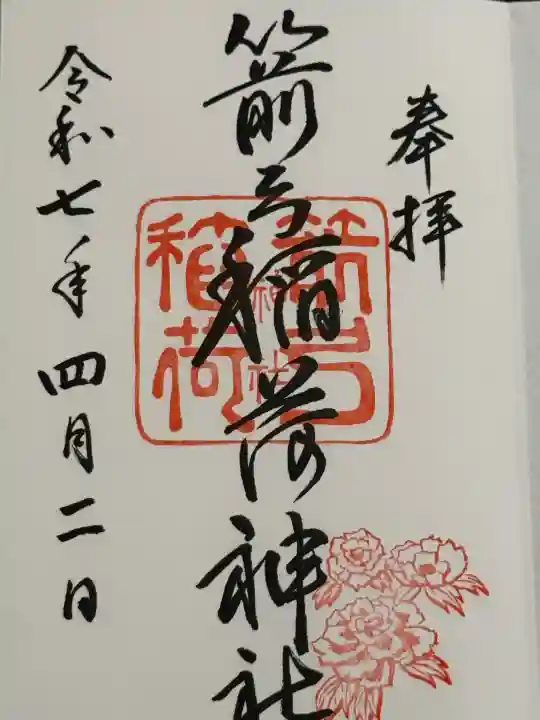 奉拝
箭弓稲荷神社
箭弓
稲荷
神社
令和七年四月二日